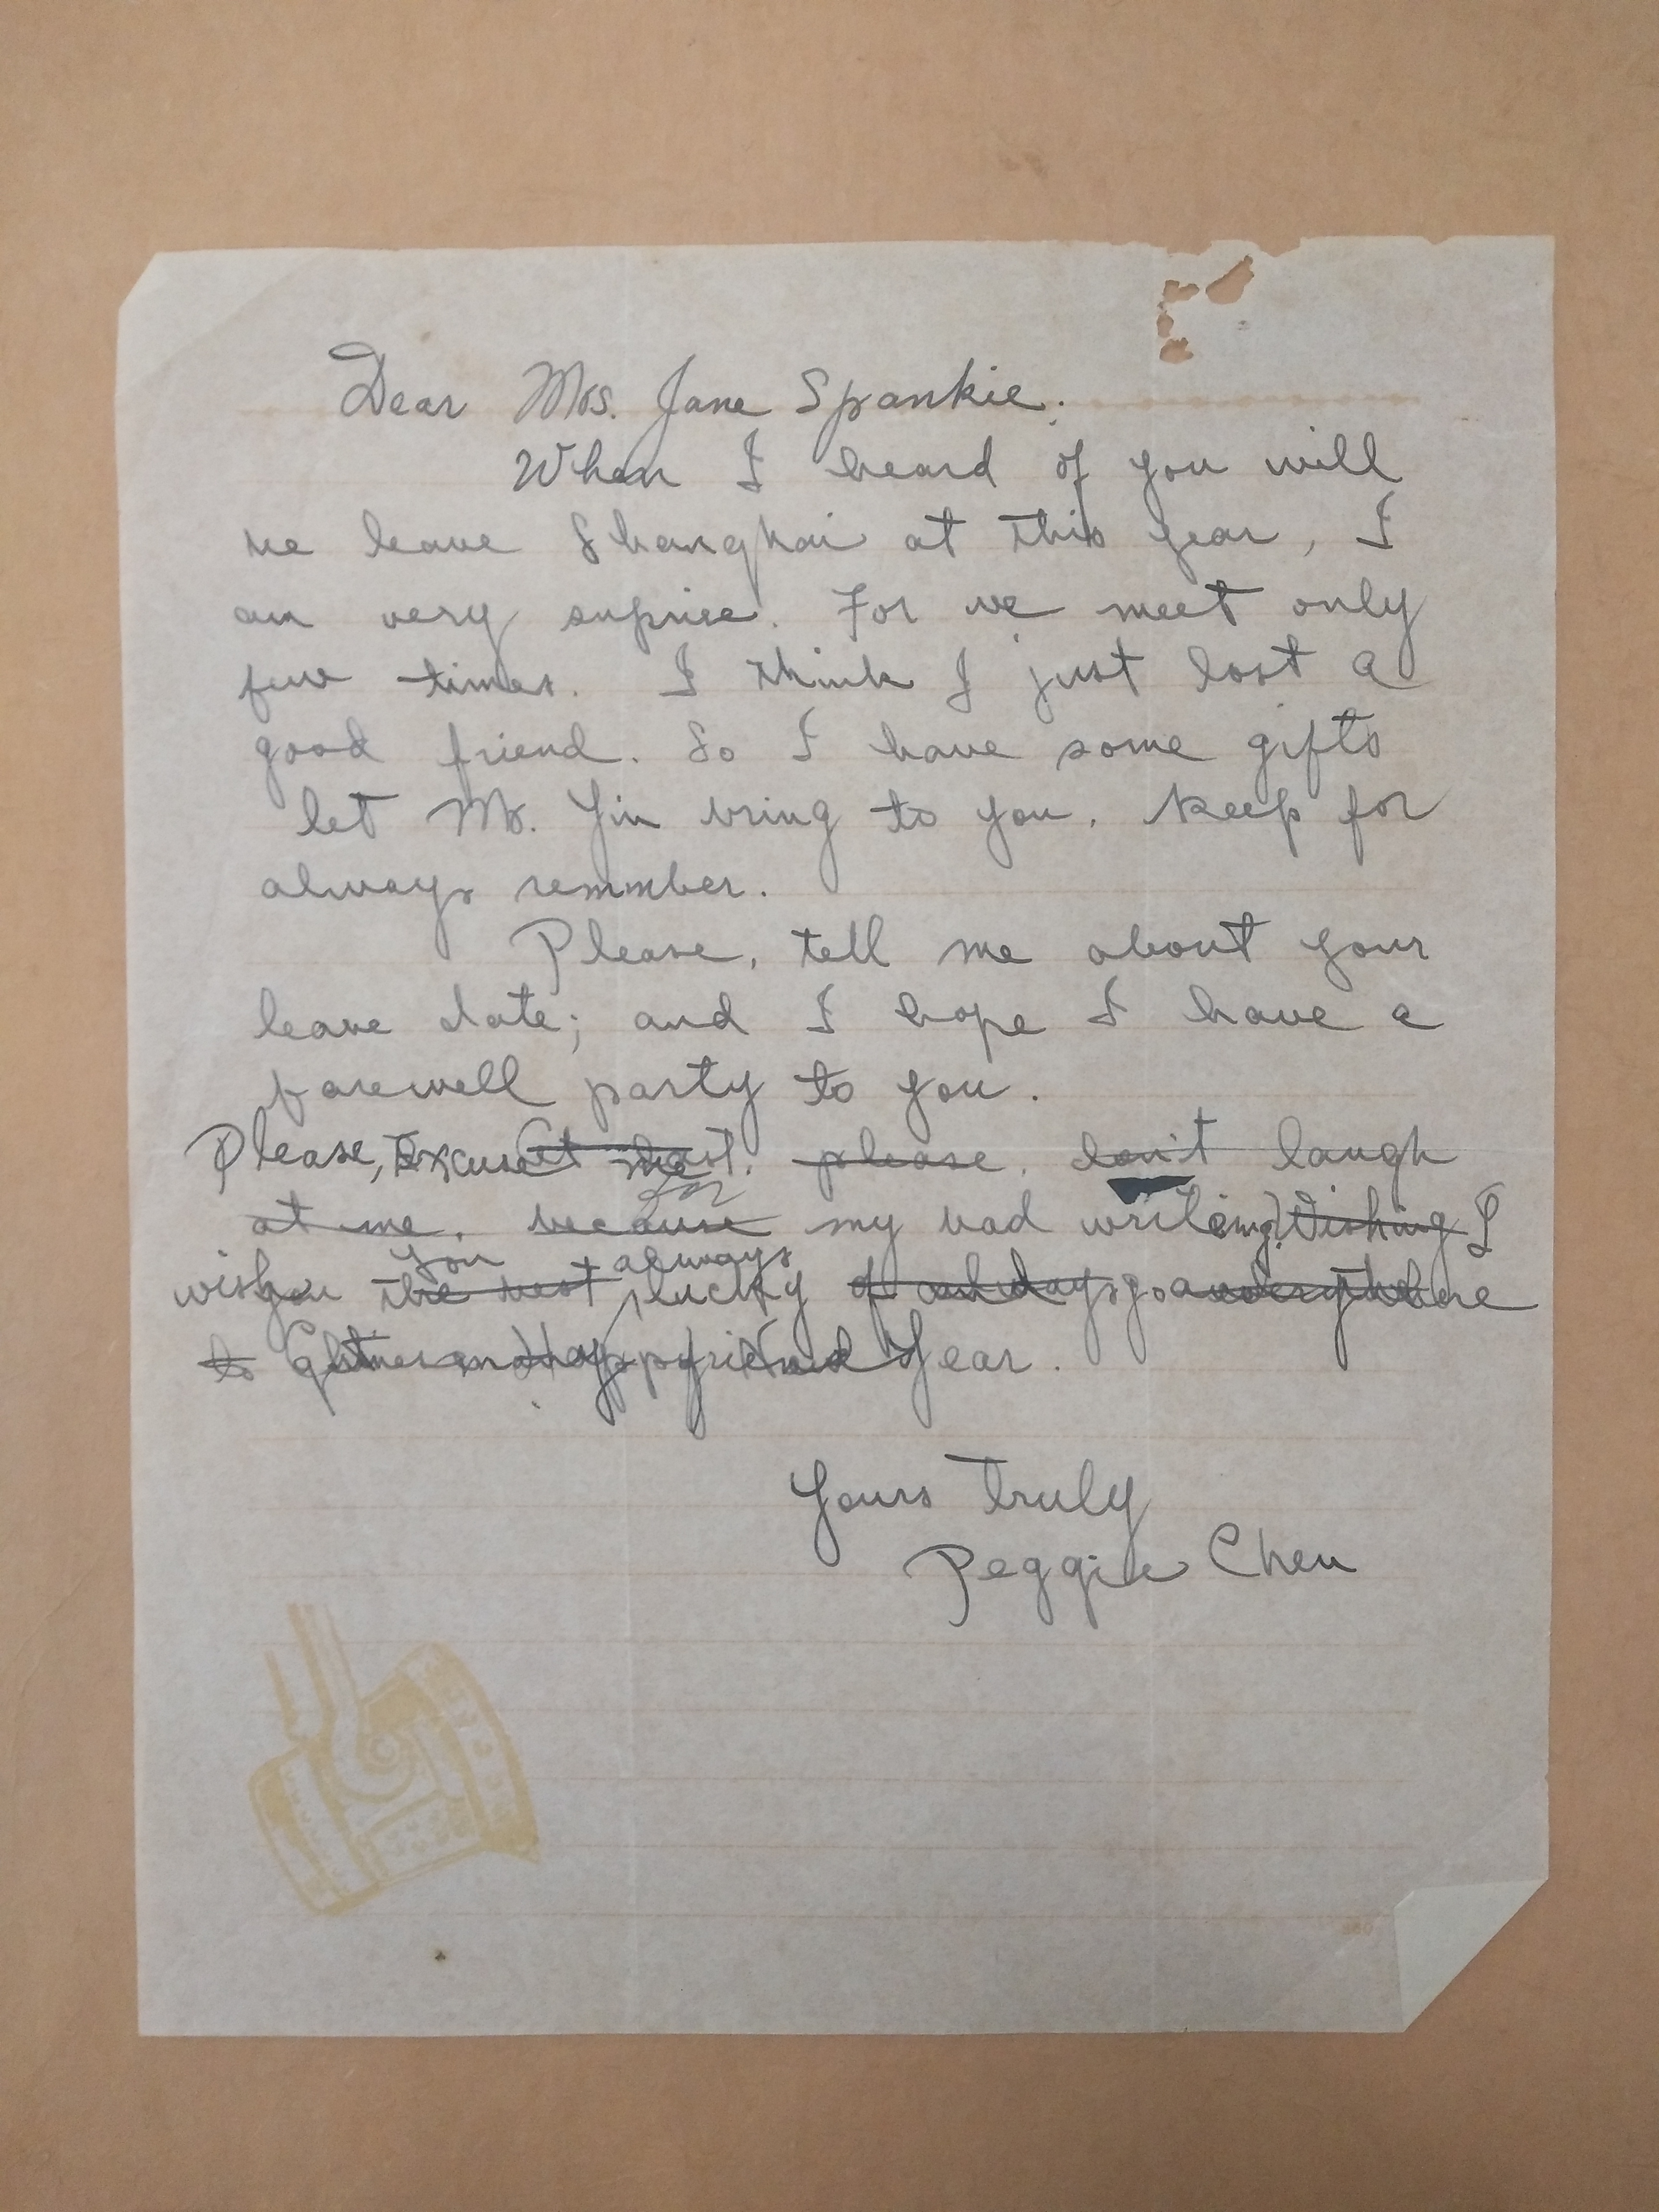 Dear Mrs. Jane Spankie.
When I heard of you will
leave Shanghai at this year, I
am very suprice. For we meet only
few times. I think I just lost a
good friend. So I have some gifts
let Mr. Yin bring to you. Keep for
always remmber.
Please, tell me about your
leave date; and I hope I have a
farewell party to you.
Please, Excuse me please. don't laugh
for
at me. because my bad writeing. Wishing I
you always
wish you the best lucky
Year.
Yours Truly
Peggie Chen